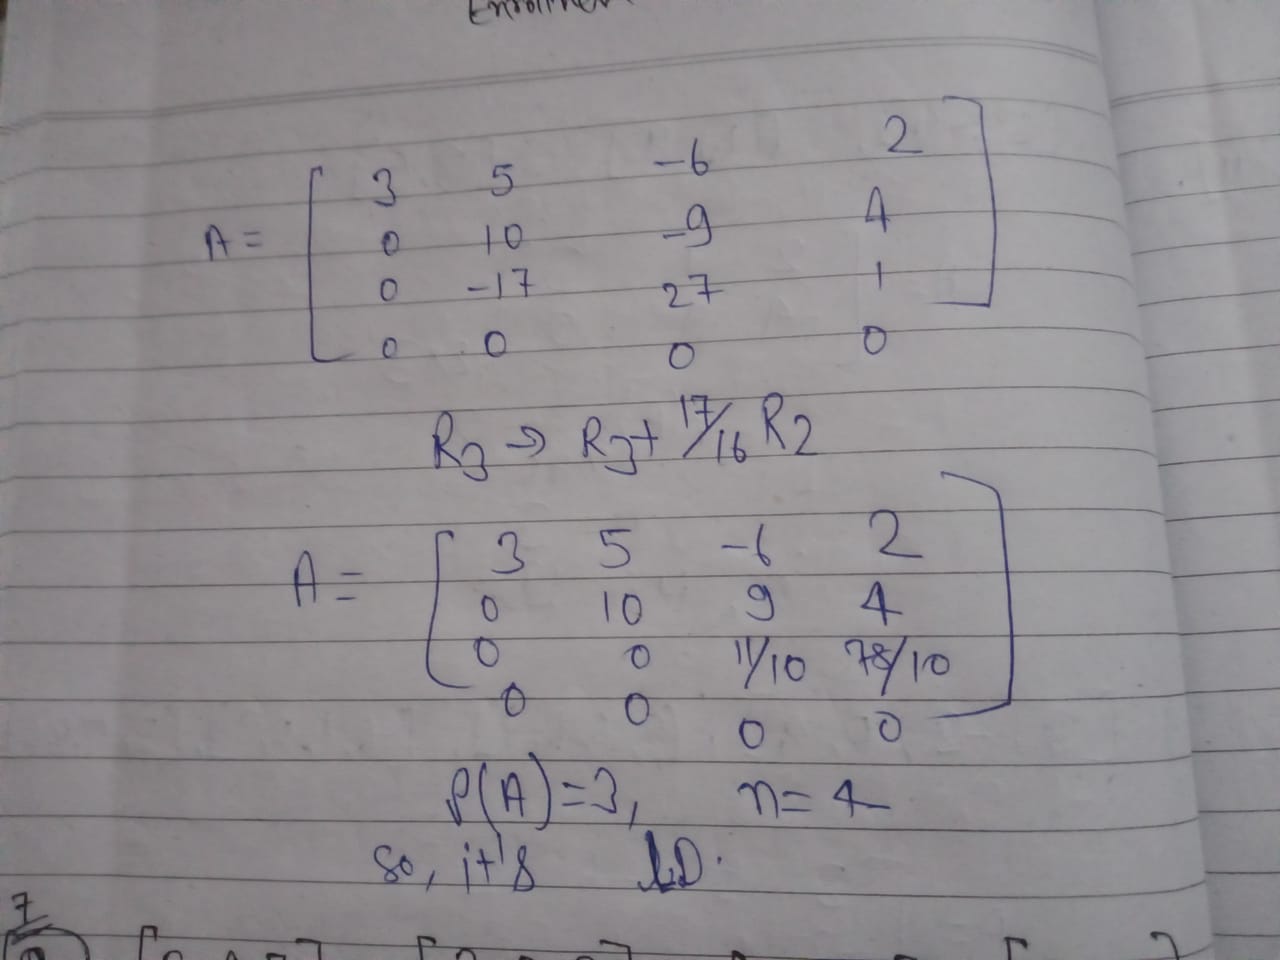 A = [ 3 5 -6 2
0 10 -9 4
0 -17 27 1
0 0 0 0 ]
R3 → R3 + 17/16 R2
A = [ 3 5 -6 2
0 10 9 4
0 0 11/10 78/10
0 0 0 0 ]
ρ(A) = 3, n = 4
so, it's LD.
7